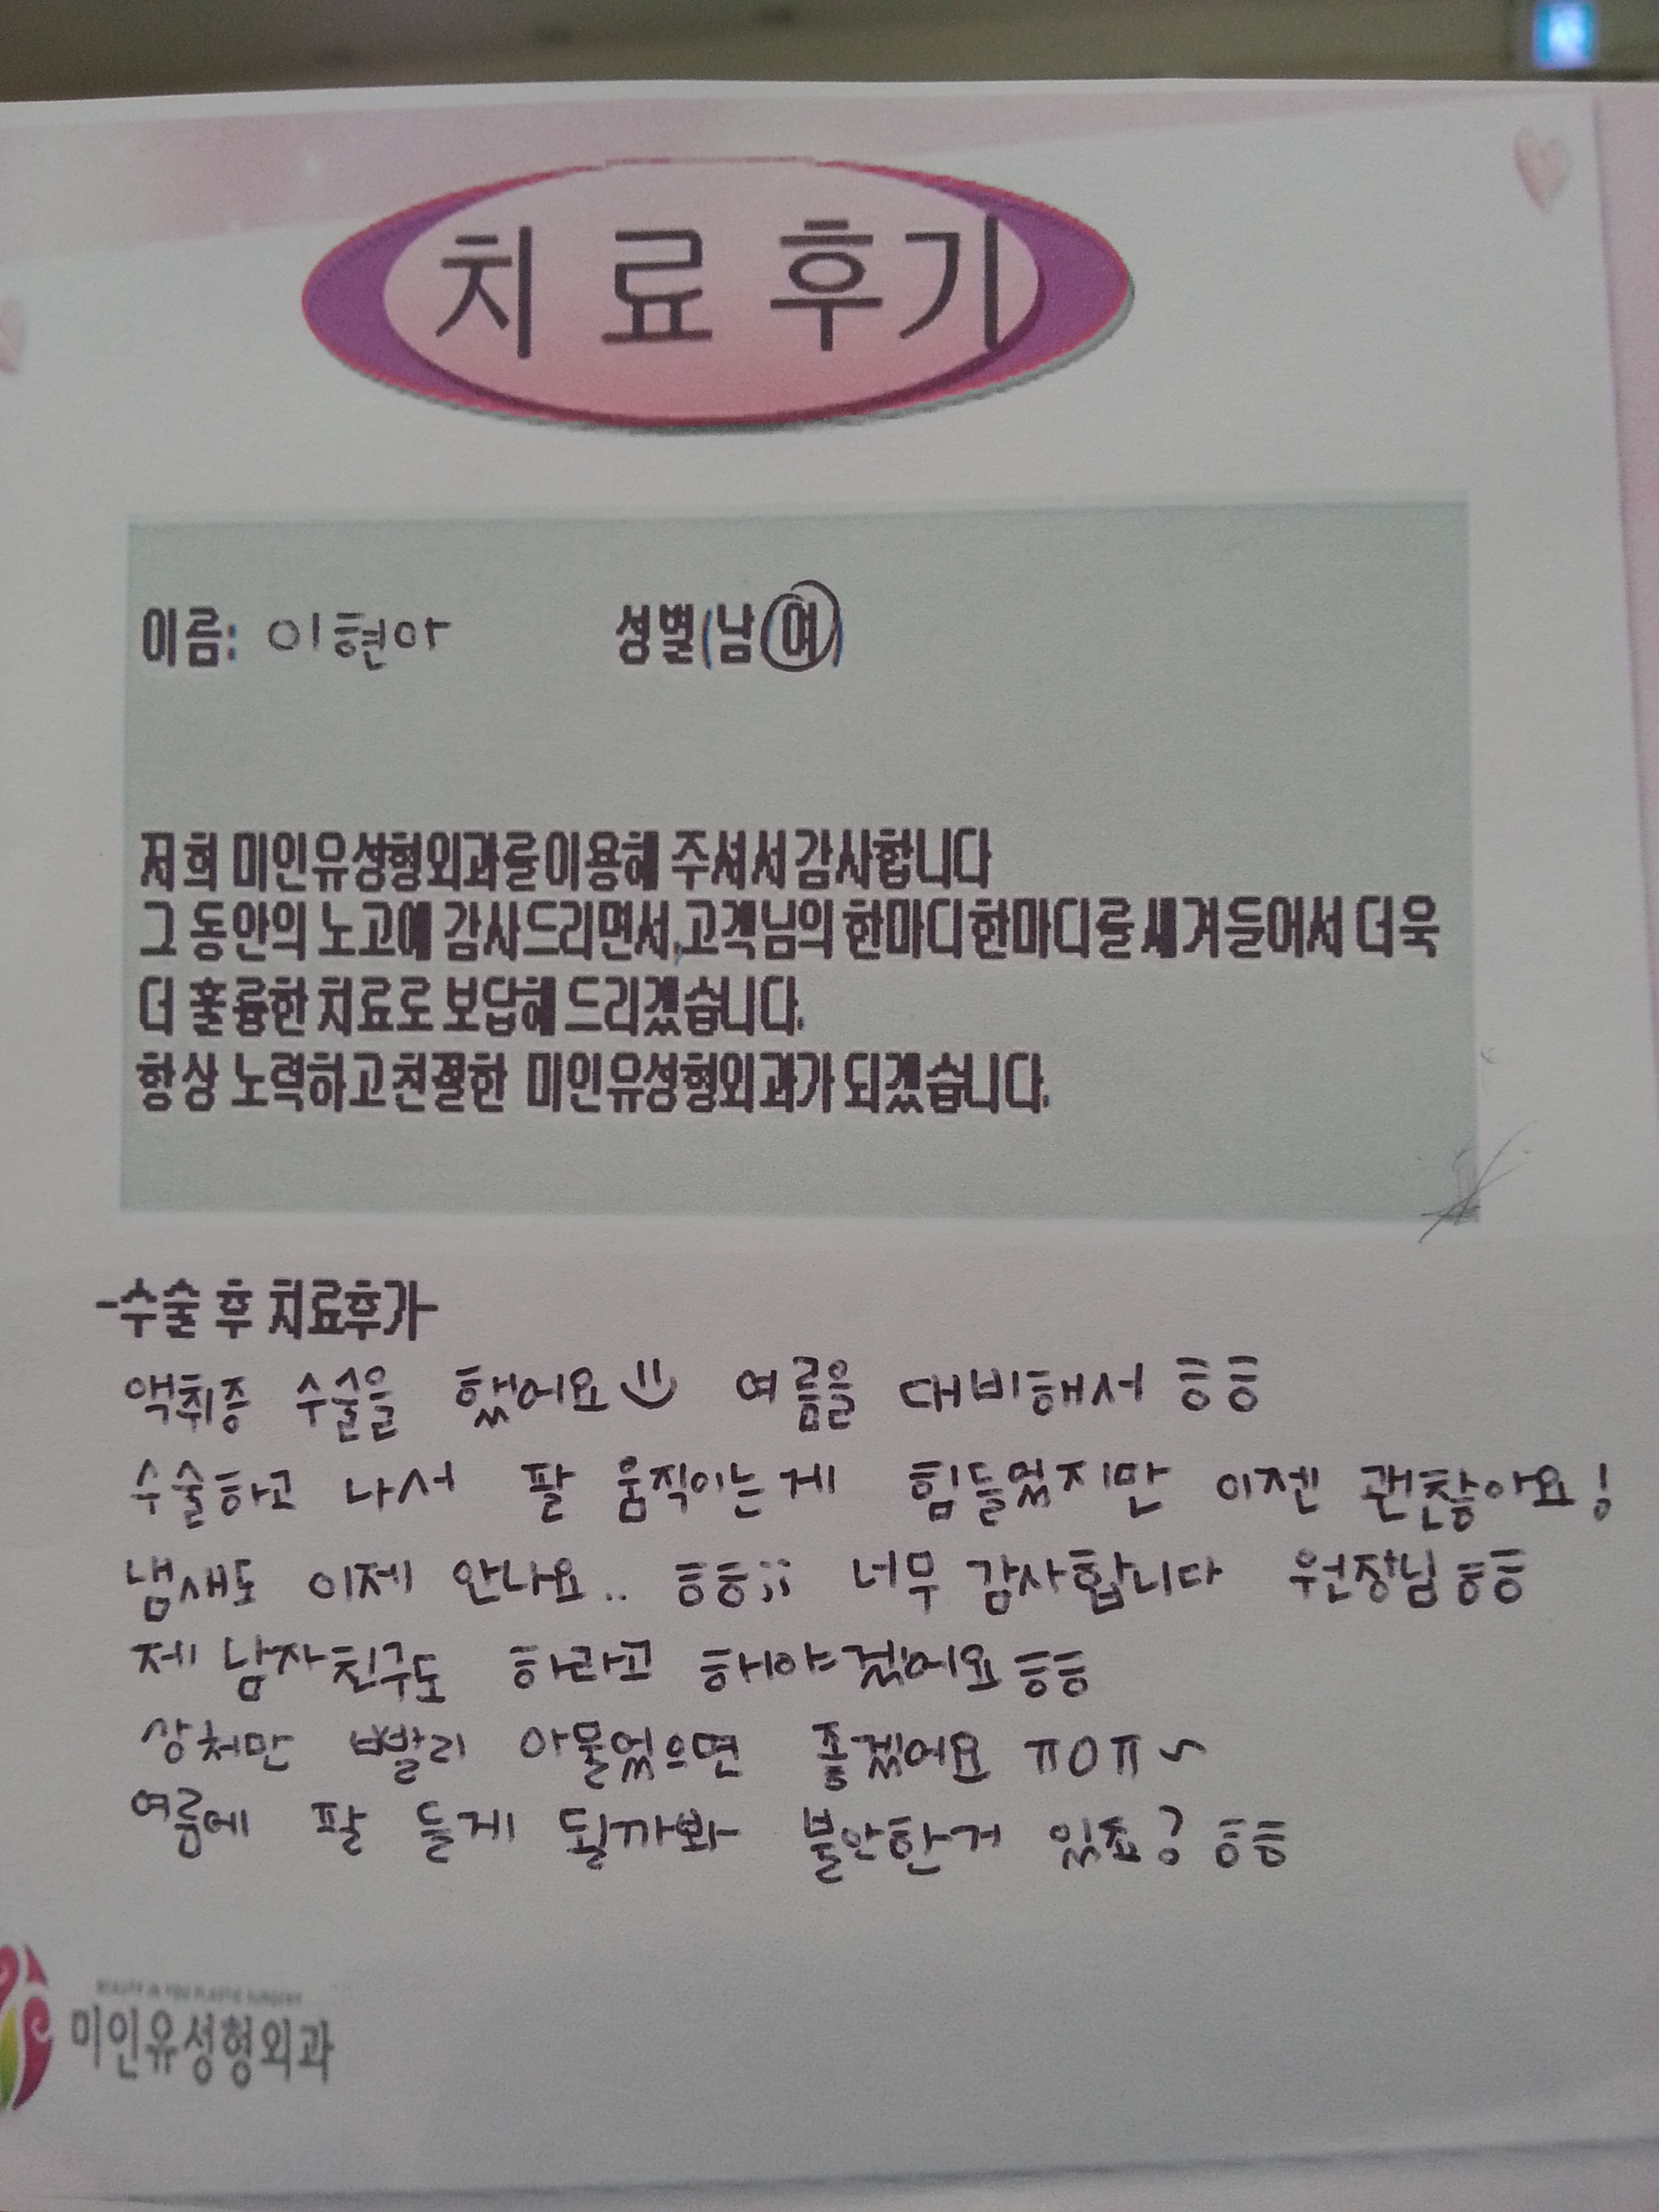 치 료 후기
이름: 이현아 성별(남 여)
저희 미인유성형외과를이용해 주셔서 감사합니다
그 동안의 노고에 감사드리면서,고객님의 한마디한마디를 새겨들어서 더욱
더 훌륭한 치료로 보답해 드리겠습니다.
항상 노력하고친절한 미인유성형외과가 되겠습니다.
-수술 후 치료후기-
액취증 수술을 했어요 여름을 대비해서 ㅎㅎ
수술하고 나서 팔 움직이는게 힘들었지만 이젠 괜찮아요!
냄새도 이제 안나요.. ㅎㅎ;; 너무 감사합니다 원장님ㅎㅎ
제 남자친구도 하라고 해야겠어요ㅎㅎ
상처만 빨리 아물었으면 좋겠어요 ㅠㅇㅠ~
여름에 팔 들게 될까봐 불안한거 있죠? ㅎㅎ
BEAUTY IN YOU PLASTIC SURGERY
미인유성형외과